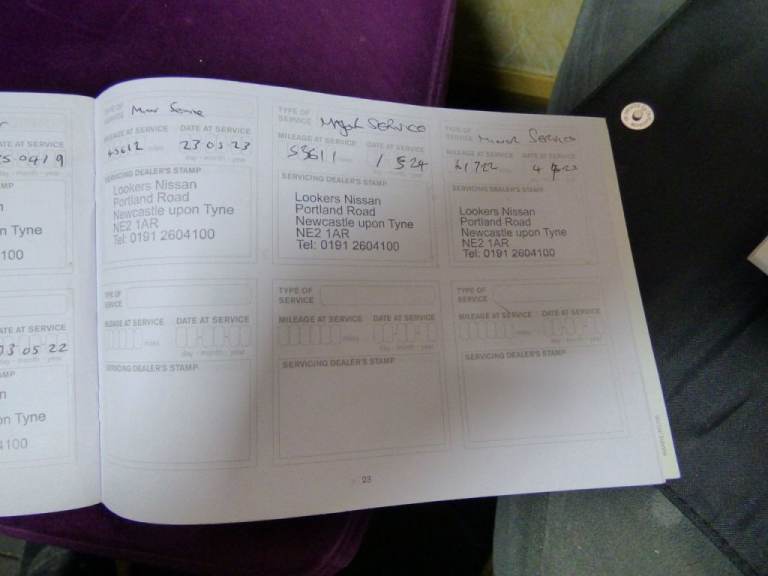 r
5 04 19
AMP
n
yne
00
ATE AT SERVICE
23 05 22
day - month - year
AMP
n
on Tyne
4100
TYPE OF
SERVICE
MILEAGE AT SERVICE
DATE AT SERVICE
45612 miles
23 05 23
day - month - year
SERVICING DEALER'S STAMP
Lookers Nissan
Portland Road
Newcastle upon Tyne
NE2 1AR
Tel: 0191 2604100
TYPE OF
SERVICE Major SERVICE
MILEAGE AT SERVICE
DATE AT SERVICE
53611 miles
1 5 24
day - month - year
SERVICING DEALER'S STAMP
Lookers Nissan
Portland Road
Newcastle upon Tyne
NE2 1AR
Tel: 0191 2604100
TYPE OF
SERVICE Minor SERVICE
MILEAGE AT SERVICE
DATE AT SERVICE
61722
SERVICING DEALER'S STAMP
Lookers Nissan
Portland Road
Newcastle upon Tyne
NE2 1AR
Tel: 0191 2604100
TYPE OF
SERVICE
MILEAGE AT SERVICE
DATE AT SERVICE
miles
day - month - year
SERVICING DEALER'S STAMP
TYPE OF
SERVICE
MILEAGE AT SERVICE
DATE AT SERVICE
miles
day - month - year
SERVICING DEALER'S STAMP
TYPE OF
SERVICE
MILEAGE AT SERVICE
DATE AT SERVICE
miles
day - month - year
SERVICING DEALER'S STAMP
23